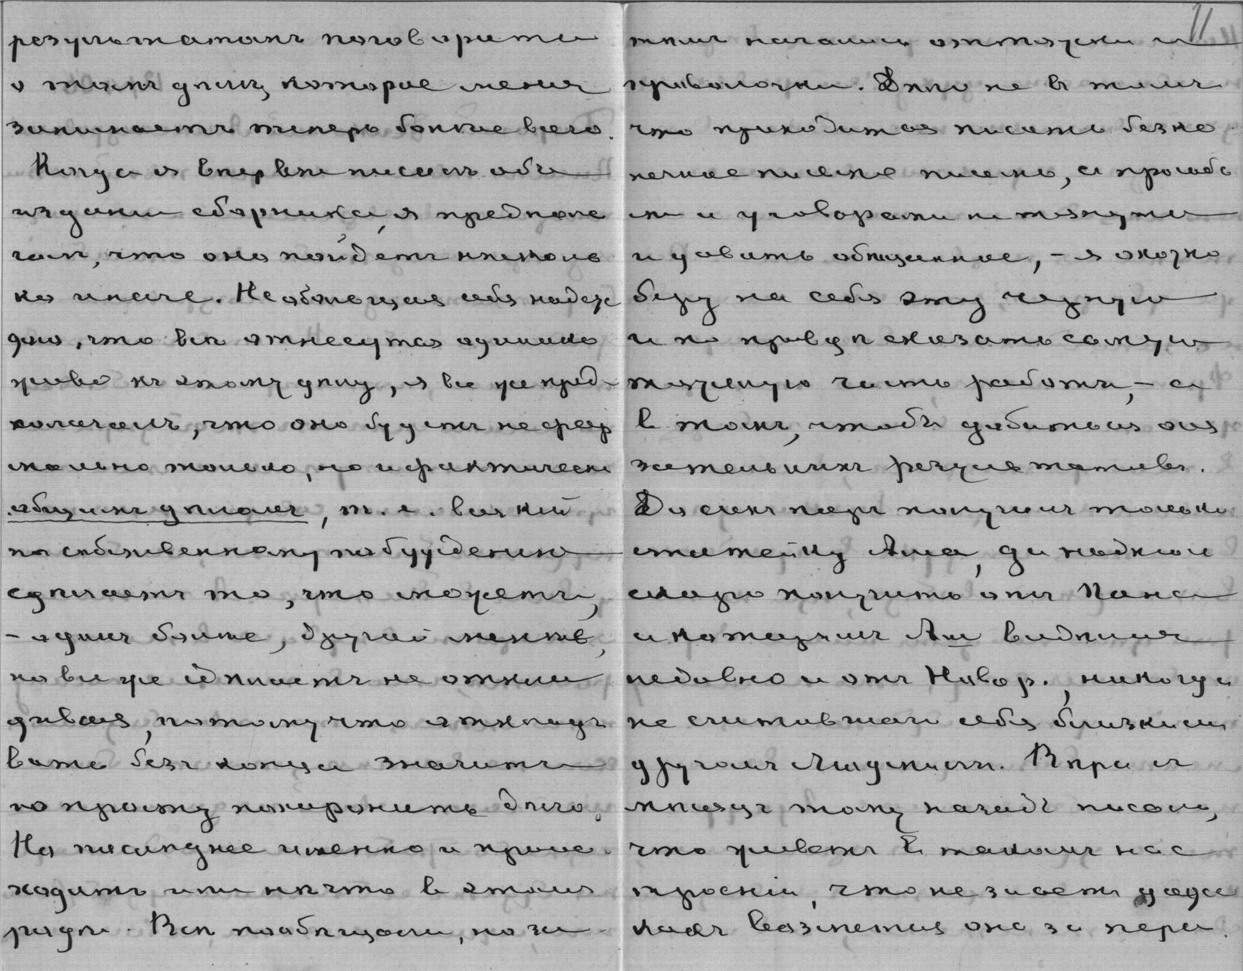 результатамъ поговорить
о томъ дѣлѣ, которое меня
занимаетъ теперь болѣе всего.
Когда я впервые писалъ объ
изданіи сборника, я предпола
галъ, что оно пойдетъ нѣсколь
ко иначе. Не обольщая себя надеж
дою, что всѣ отнесутся одинако
живо къ этому дѣлу, я все же пред
полагалъ, что оно будетъ не фор
мально только, но и фактически
общимъ дѣломъ, т. е. всякій
по собственному побужденію
сдѣлаетъ то, что можетъ,
- одинъ болѣе, другой менѣе,
но все же сдѣлаетъ не откла
дывая, потому что откладъ
вать безъ конца значитъ
по просту похоронить дѣло.
На послѣднее именно и проис
ходитъ или нѣчто в этомъ
родѣ. Всѣ пообѣщали, но за
11
тѣмъ начались оттяжки и
проволочки. Дѣло не въ томъ
что приходится писать безко
нечное письмо, а просьба
ми и уговорами
и обѣщанное, - я охотно
беру на себя эту черную
и по правдѣ сказать самую
тяжелую часть работы, - а
в томъ, чтобъ добиться ося
зательныхъ результатовъ.
До сихъ поръ получилъ только
статейку Аша, да надѣюсь
скоро получить отъ
Аш видѣлся
недавно и отъ Навор., никогда
не считавшаго себя близкимъ
другомъ Впрочем
мѣсяцъ тому назадъ писалъ,
что живетъ в такомъ нас
троеніи, что не знаетъ даже
какъ возьмется она за пере